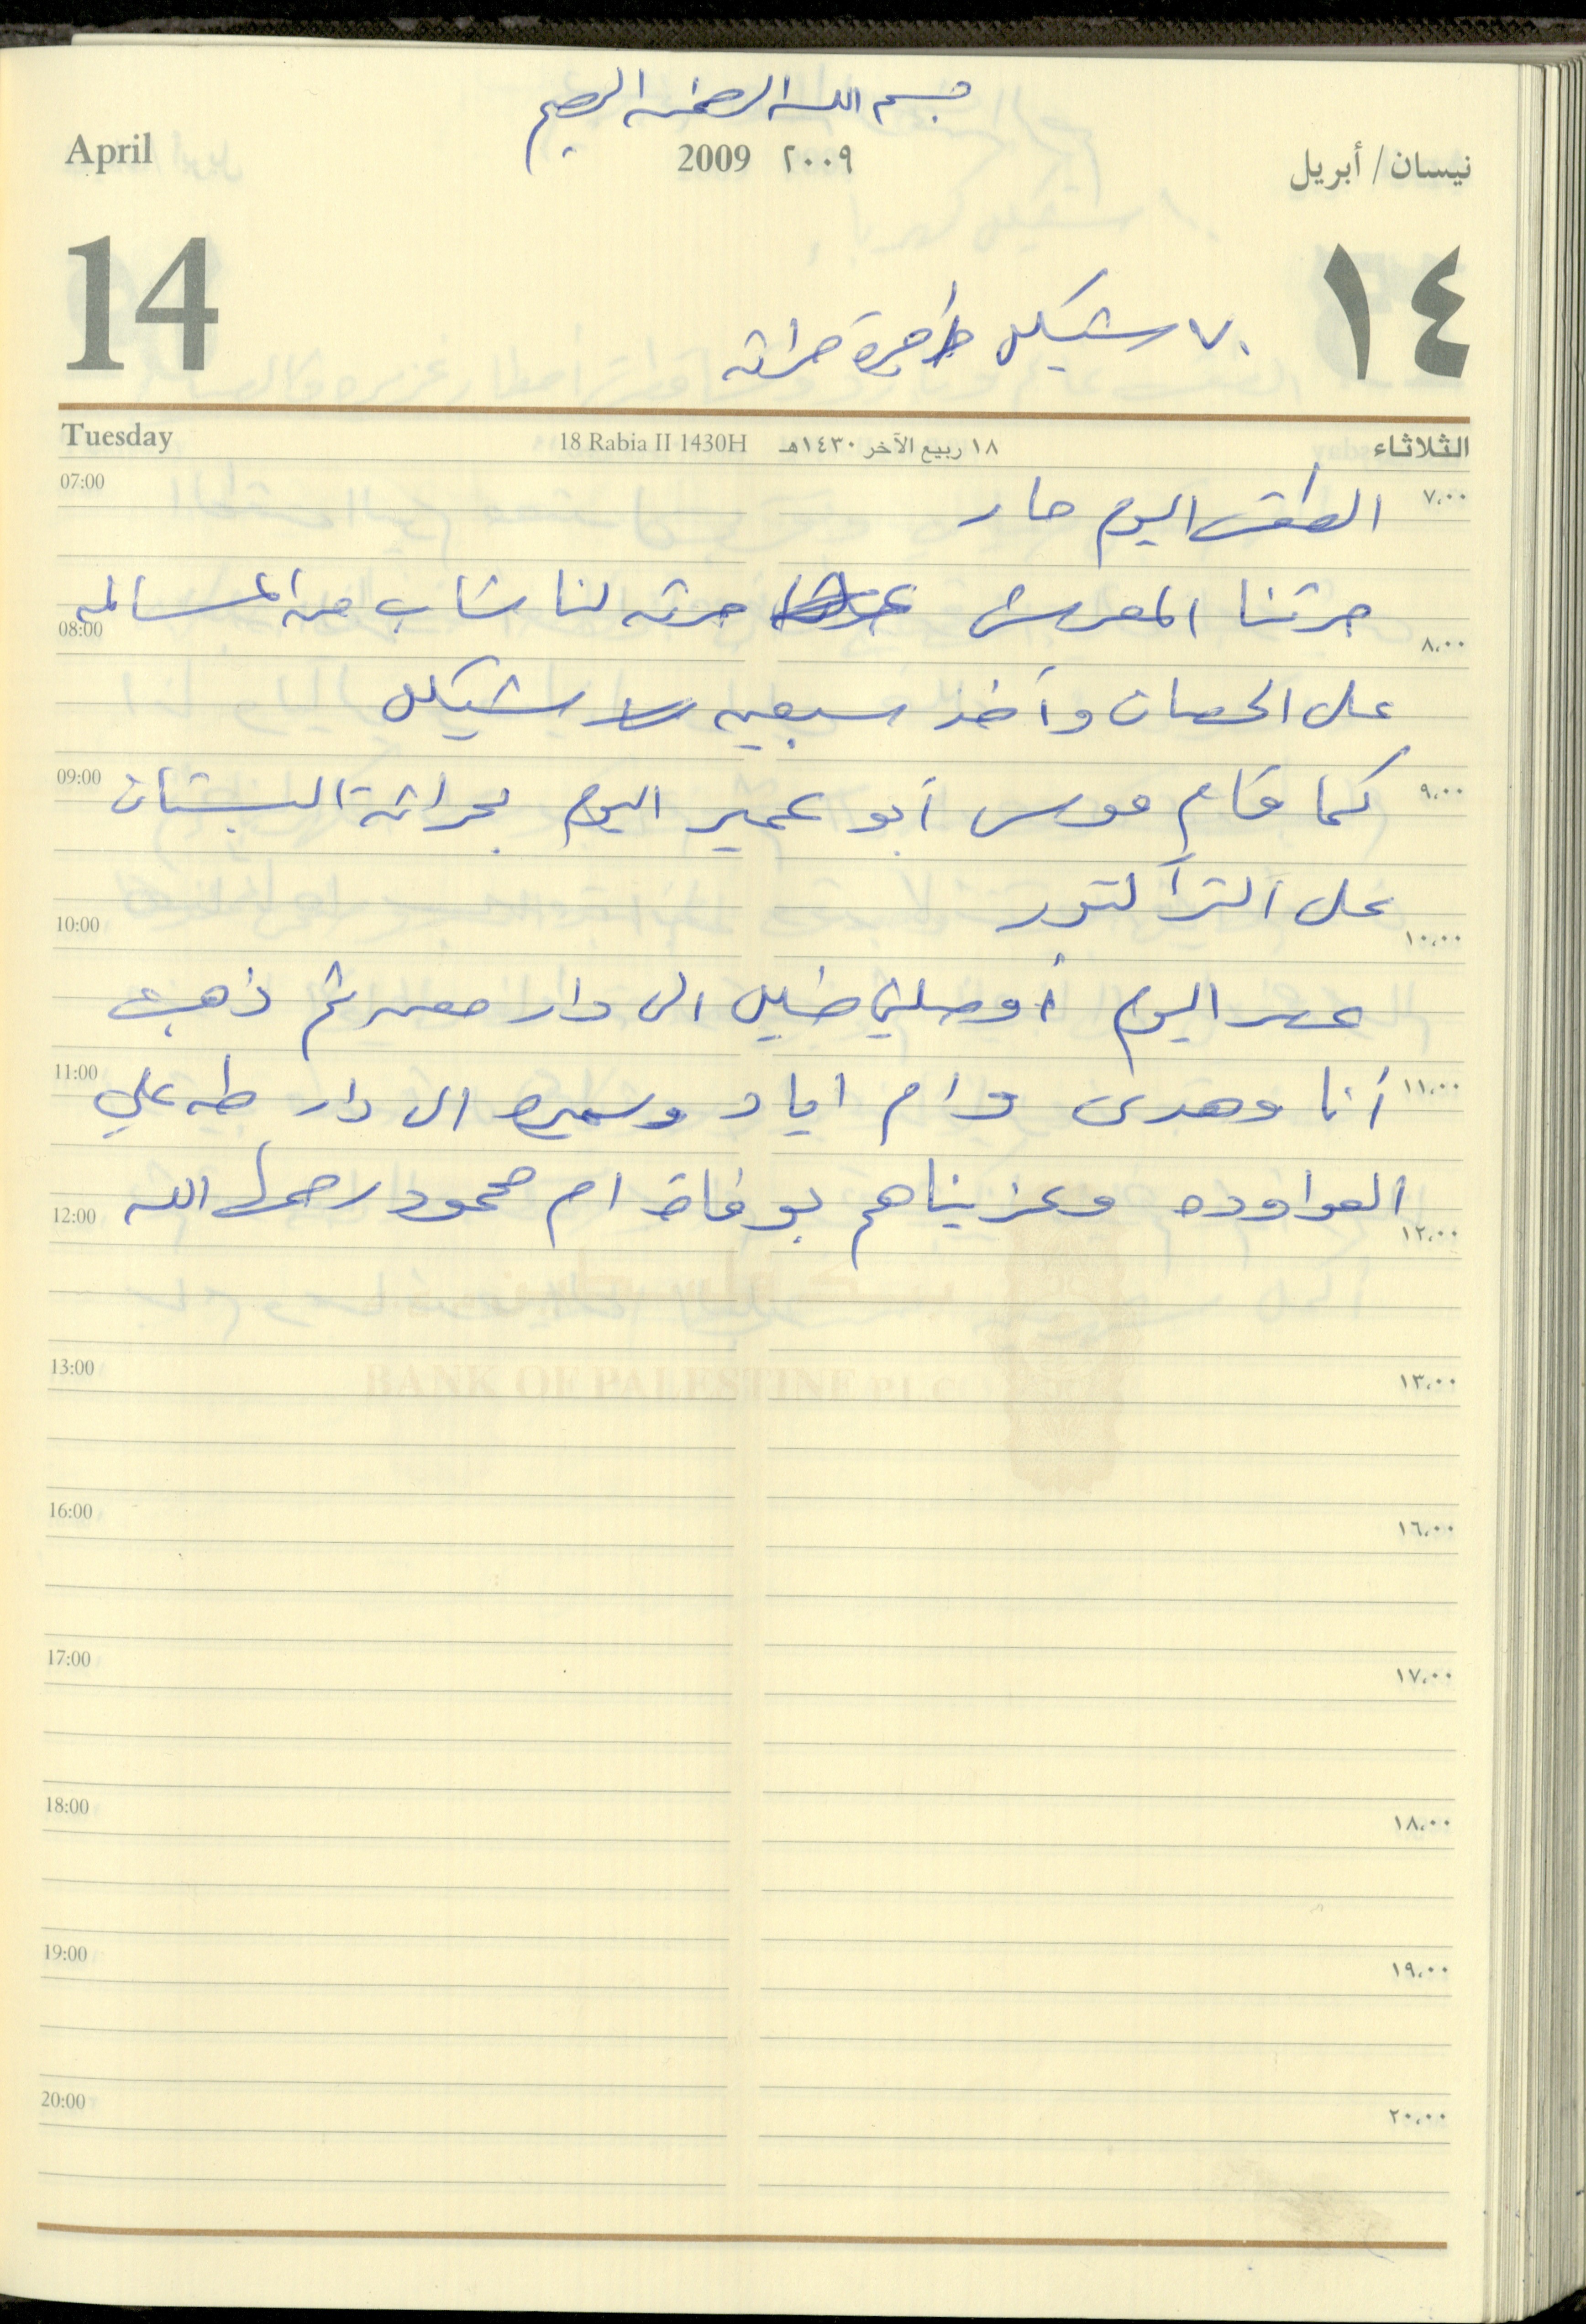 بسم الله الرحمن الرحيم
April 2009 ٢٠٠٩ نيسان / أبريل
14 ١٤
٧٠ شيكل اجرة حراثه
Tuesday 18 Rabia II 1430H ١٨ ربيع الآخر ١٤٣٠هـ الثلاثاء
07:00 الطقس اليوم حار ٧،٠٠
حرثنا المعرش حرث لنا شاب من المسالمه
08:00 ٨،٠٠
على الحصان وأخذ سبعين شيكل
09:00 كما قام موسى أبو عمير اليوم بحراثة البستان ٩،٠٠
على التراكتور
10:00 ١٠،٠٠
عصر اليوم أوصلني خليل الى دار ثم ذهبت
11:00 أنا وهدى وام اياد وسميره الى دار طه علي ١١،٠٠
العواوده وعزيناهم بوفاة ام محمود رحمها الله
12:00 ١٢،٠٠
بنك فلسطين
BANK OF PALESTINE P.L.C
13:00 ١٣،٠٠
16:00 ١٦،٠٠
17:00 ١٧،٠٠
18:00 ١٨،٠٠
19:00 ١٩،٠٠
20:00 ٢٠،٠٠